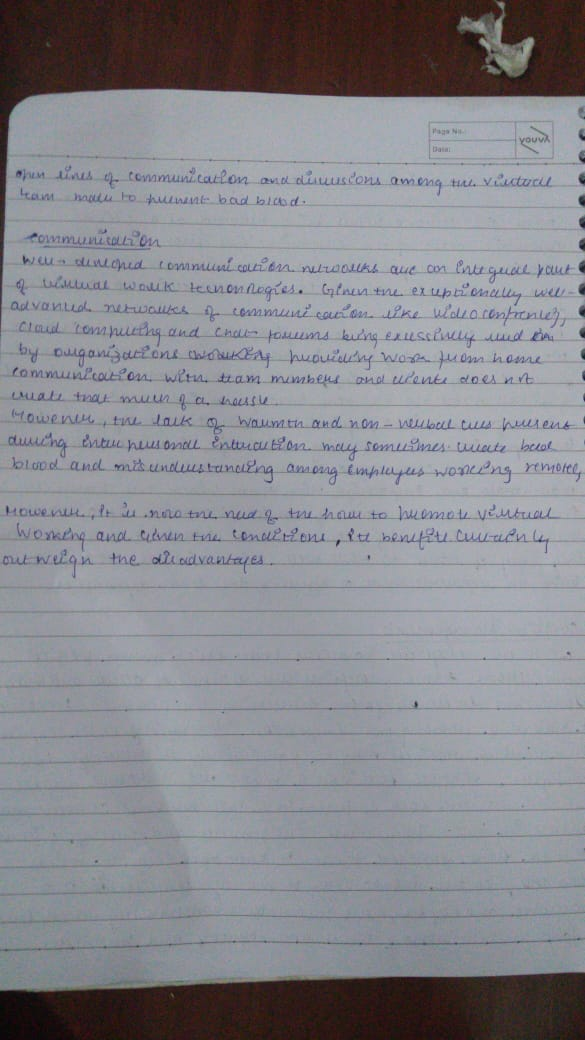 Page No.:
Date:
YOUVA
open lines of communication and discussions among the virtual
team mates to prevent bad blood.
Communication
Well-developed communication networks are an integral part
of virtual work technologies. Given the exceptionally well-
advanced networks of communication like videoconferencing,
cloud computing and chat forums being excessively used
by organizations providing work from home
communication with team members and clients does not
create that much of a hassle.
However, the lack of warmth and non-verbal cues present
during interpersonal interaction may sometimes create bad
blood and misunderstanding among employees working remotely
However, it is now the need of the hour to promote virtual
working and given the conditions, its benefits certainly
outweigh the disadvantages.